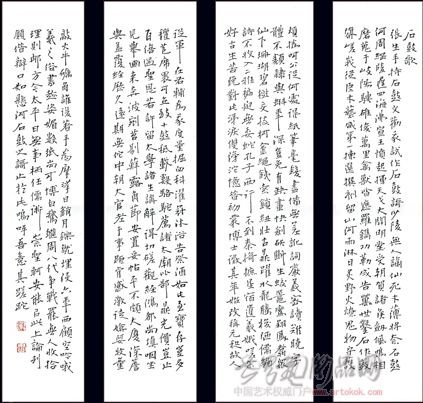 石鼓歌
張生手持石鼓文勸我試作石鼓歌少陵無人謫仙死才薄將奈石鼓
何周綱陵遲四海沸宣王憤起揮天戈大開明堂受朝賀諸侯劍佩鳴相
磨蒐于岐陽騁雄俊萬里禽獸皆遮羅鐫功勒成告萬世鑿石作鼓隳
嵯峨從臣才藝咸第一揀選撰刻留山阿雨淋日炙野火燎鬼物守護
煩撝呵公從何處得紙本毫髮盡備無差訛辭嚴義密讀難曉字
體不類隸與蝌年深豈免有缺畫快劍斫斷生蛟鼉鸞翔鳳翥衆
仙下珊瑚碧樹交枝柯金繩鐵索鎖鈕壯古鼎躍水龍騰梭陋儒編
詩不收入二雅褊迫無委蛇孔子西行不到秦掎摭星宿遺羲娥嗟余
好古生苦晚對此涕淚雙滂沱憶昔初蒙博士徵其年始改稱元和故人
從軍在右輔為我度量掘臼科濯冠沐浴告祭酒如此至寶存豈多
氈包席裹可立致十鼓祇載數駱駝薦諸太廟比郜鼎光價豈止
百倍過聖恩若許留太學諸生講解得切磋觀經鴻都尚填咽坐
見舉國來奔波剜苔剔蘚露節角安置妥帖平不頗大廈深簷
與蓋覆經歷久遠期無佗中朝大官老於事詎肯感激徒媕婀牧童
敲火牛礪角誰復著手為摩挲日銷月鑠就埋沒六年西顧空吟哦
羲之俗書趁姿媚數紙尚可博白鵝繼周八代爭戰罷無人收拾
理則那方今太平日無事柄任儒術崇丘軻安能以此上論列
願借辯口如懸河石鼓之歌止於此嗚呼吾意其蹉跎
中国艺术权威门户
www.artokok.com